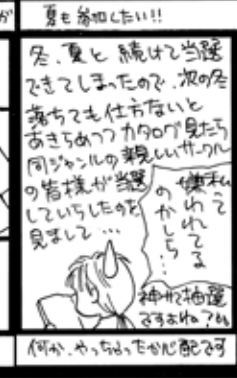 が
夏も参加したい!!
冬、夏と 続けて当選
できてしまったので、次の冬
落ちても仕方ないと
あきらめつつカタログ見たら
同ジャンルの親しいサークル
の皆様が当選
していらしたのを
見まして…
私って
嫌われてる
のかしら…
神サマ抽選
ですよね?
何か、やっちゃったか心配です